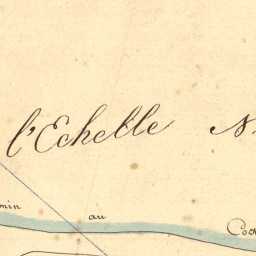 l'Echelle N
min au Cod